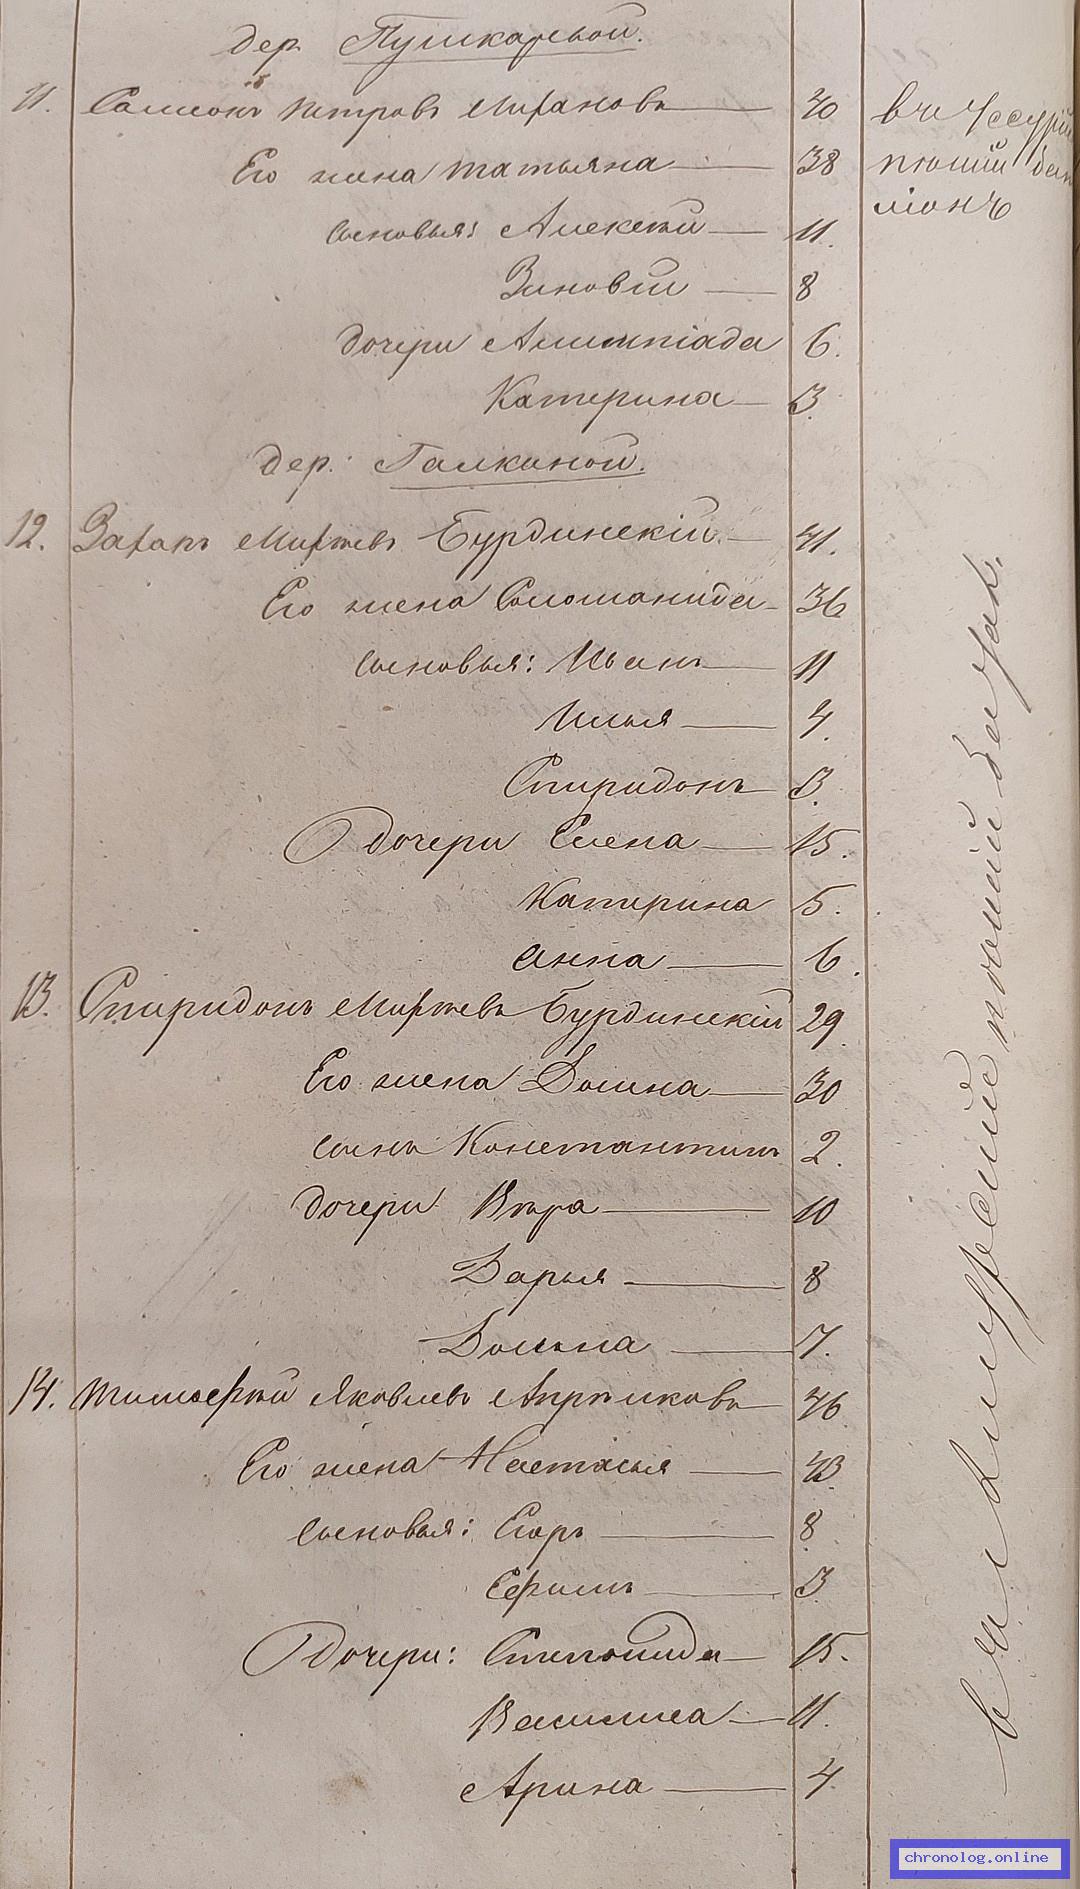 дер. Пушкарской.
11. Самсонъ Петровъ Мирановъ 40
въ Уссурій
Его жена Татьяна 38
пѣшій бат
сыновья: Алексѣй 11.
ліонъ
Зиновій 8
дочери Алимпіада 6.
Катерина 3.
дер. Галкиной.
12. Захаръ Мирѣевъ Бурдинскій 41.
Его жена Соломанида 36
сыновья: Иванъ 11
Илья 4.
Спиридонъ 3.
дочери Елена 15.
Катерина 5.
Анна 6.
13. Спиридонъ Мирѣевъ Бурдинскій 29.
Его жена Домна 30
сынъ Константинъ 2.
дочери Вѣра 10
Дарья 8
Домна 7.
14. Тимофѣй Яковлевъ 46
Его жена Настасья 43
сыновья: Егоръ 8
Ефимъ 3
дочери: Степонида 15.
Василиса 11.
Арина 4
въ Амурскій пѣшій
chronolog.online